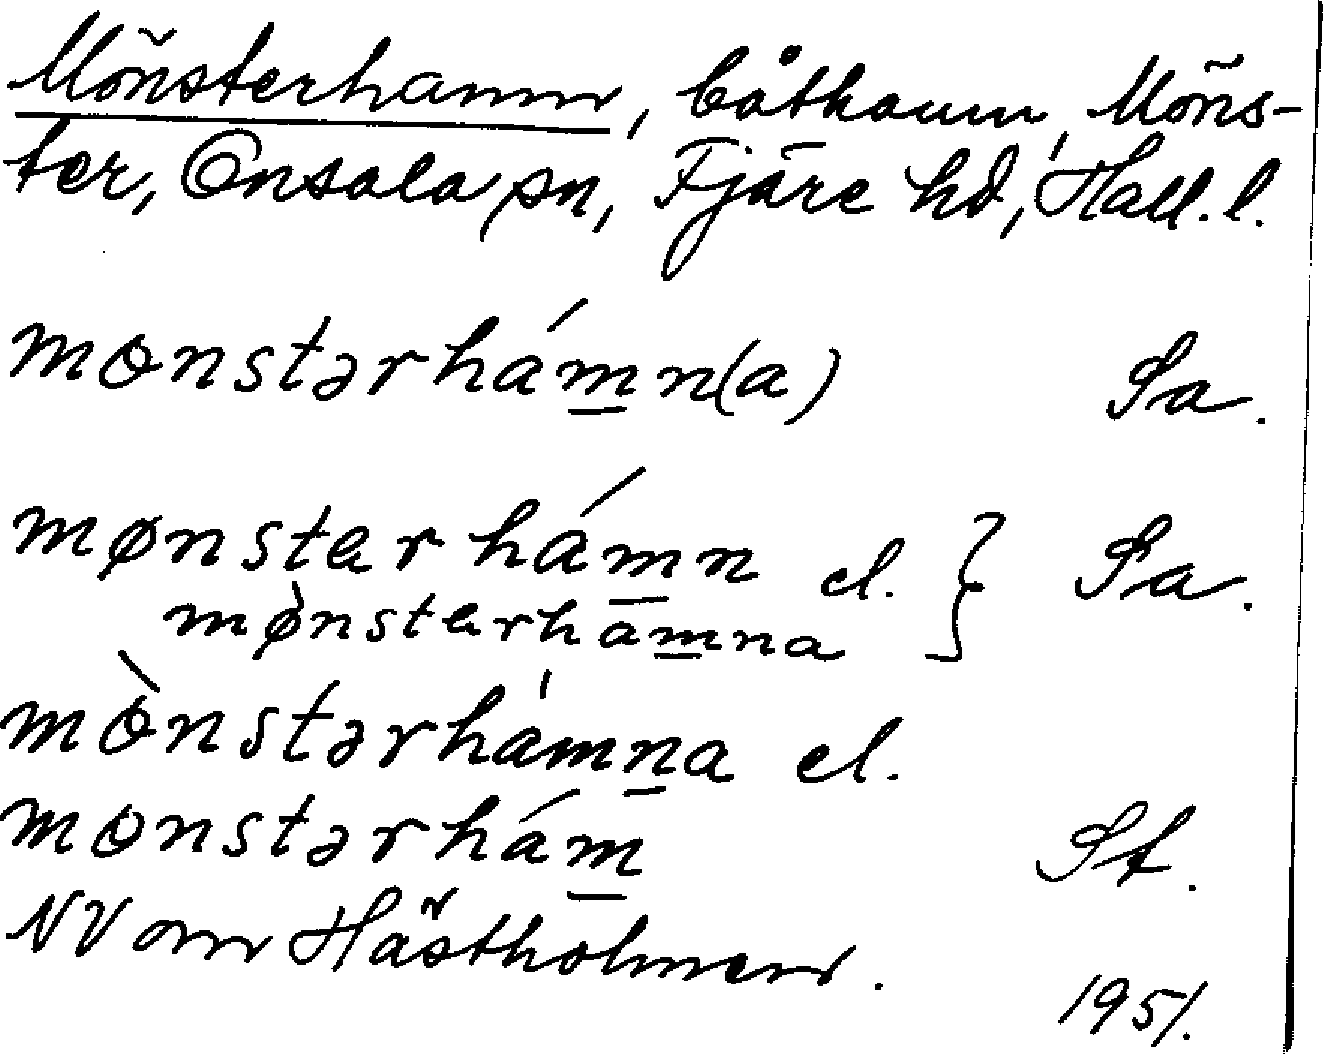 Mönsterhamn, båthamn, Möns-
ter, Onsala sn, Fjäre hd, Hall. l.
mɵnstərhámn(a) Sa.
mønstərhámn el. } Sa.
mø̀nstərhamna
mɵ̀nstərhàmna el.
mɵnstərhám St.
NV om Hästholmen.
1951.